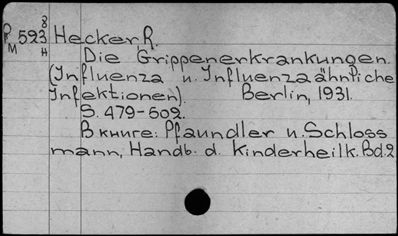 8
P 593 Hecker, R.
M H
Die Grippenerkrankungen.
(Influenza u. Influenzaähnliche
Infektionen). Berlin, 1931.
S. 479-502.
В книге: Pfaundler u. Schloss
mann, Handb. d. Kinderheilk. Bd. 2